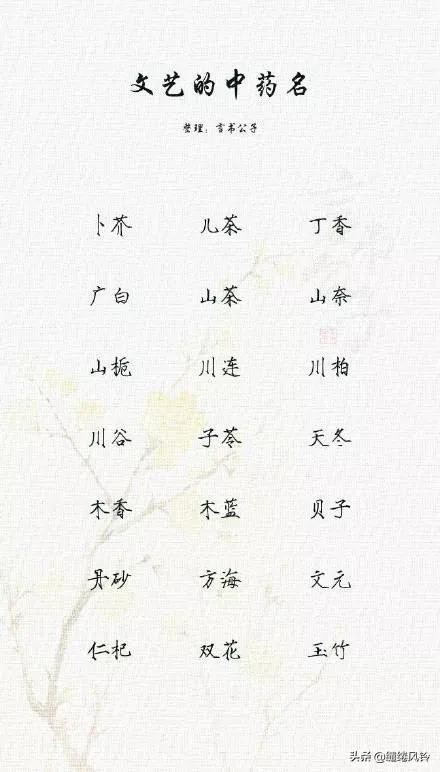 文艺的中药名
整理：言书公子
卜芥 儿茶 丁香
广白 山茶 山奈
山栀 川连 川柏
川谷 子苓 天冬
木香 木蓝 贝子
丹砂 方海 文元
仁杞 双花 玉竹
头条 @缠绕风铃